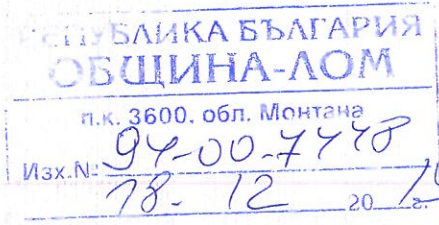 РЕПУБЛИКА БЪЛГАРИЯ
ОБЩИНА-ЛОМ
п.к. 3600, обл. Монтана
Изх.N: 94-00-7448
18. 12 20 г.